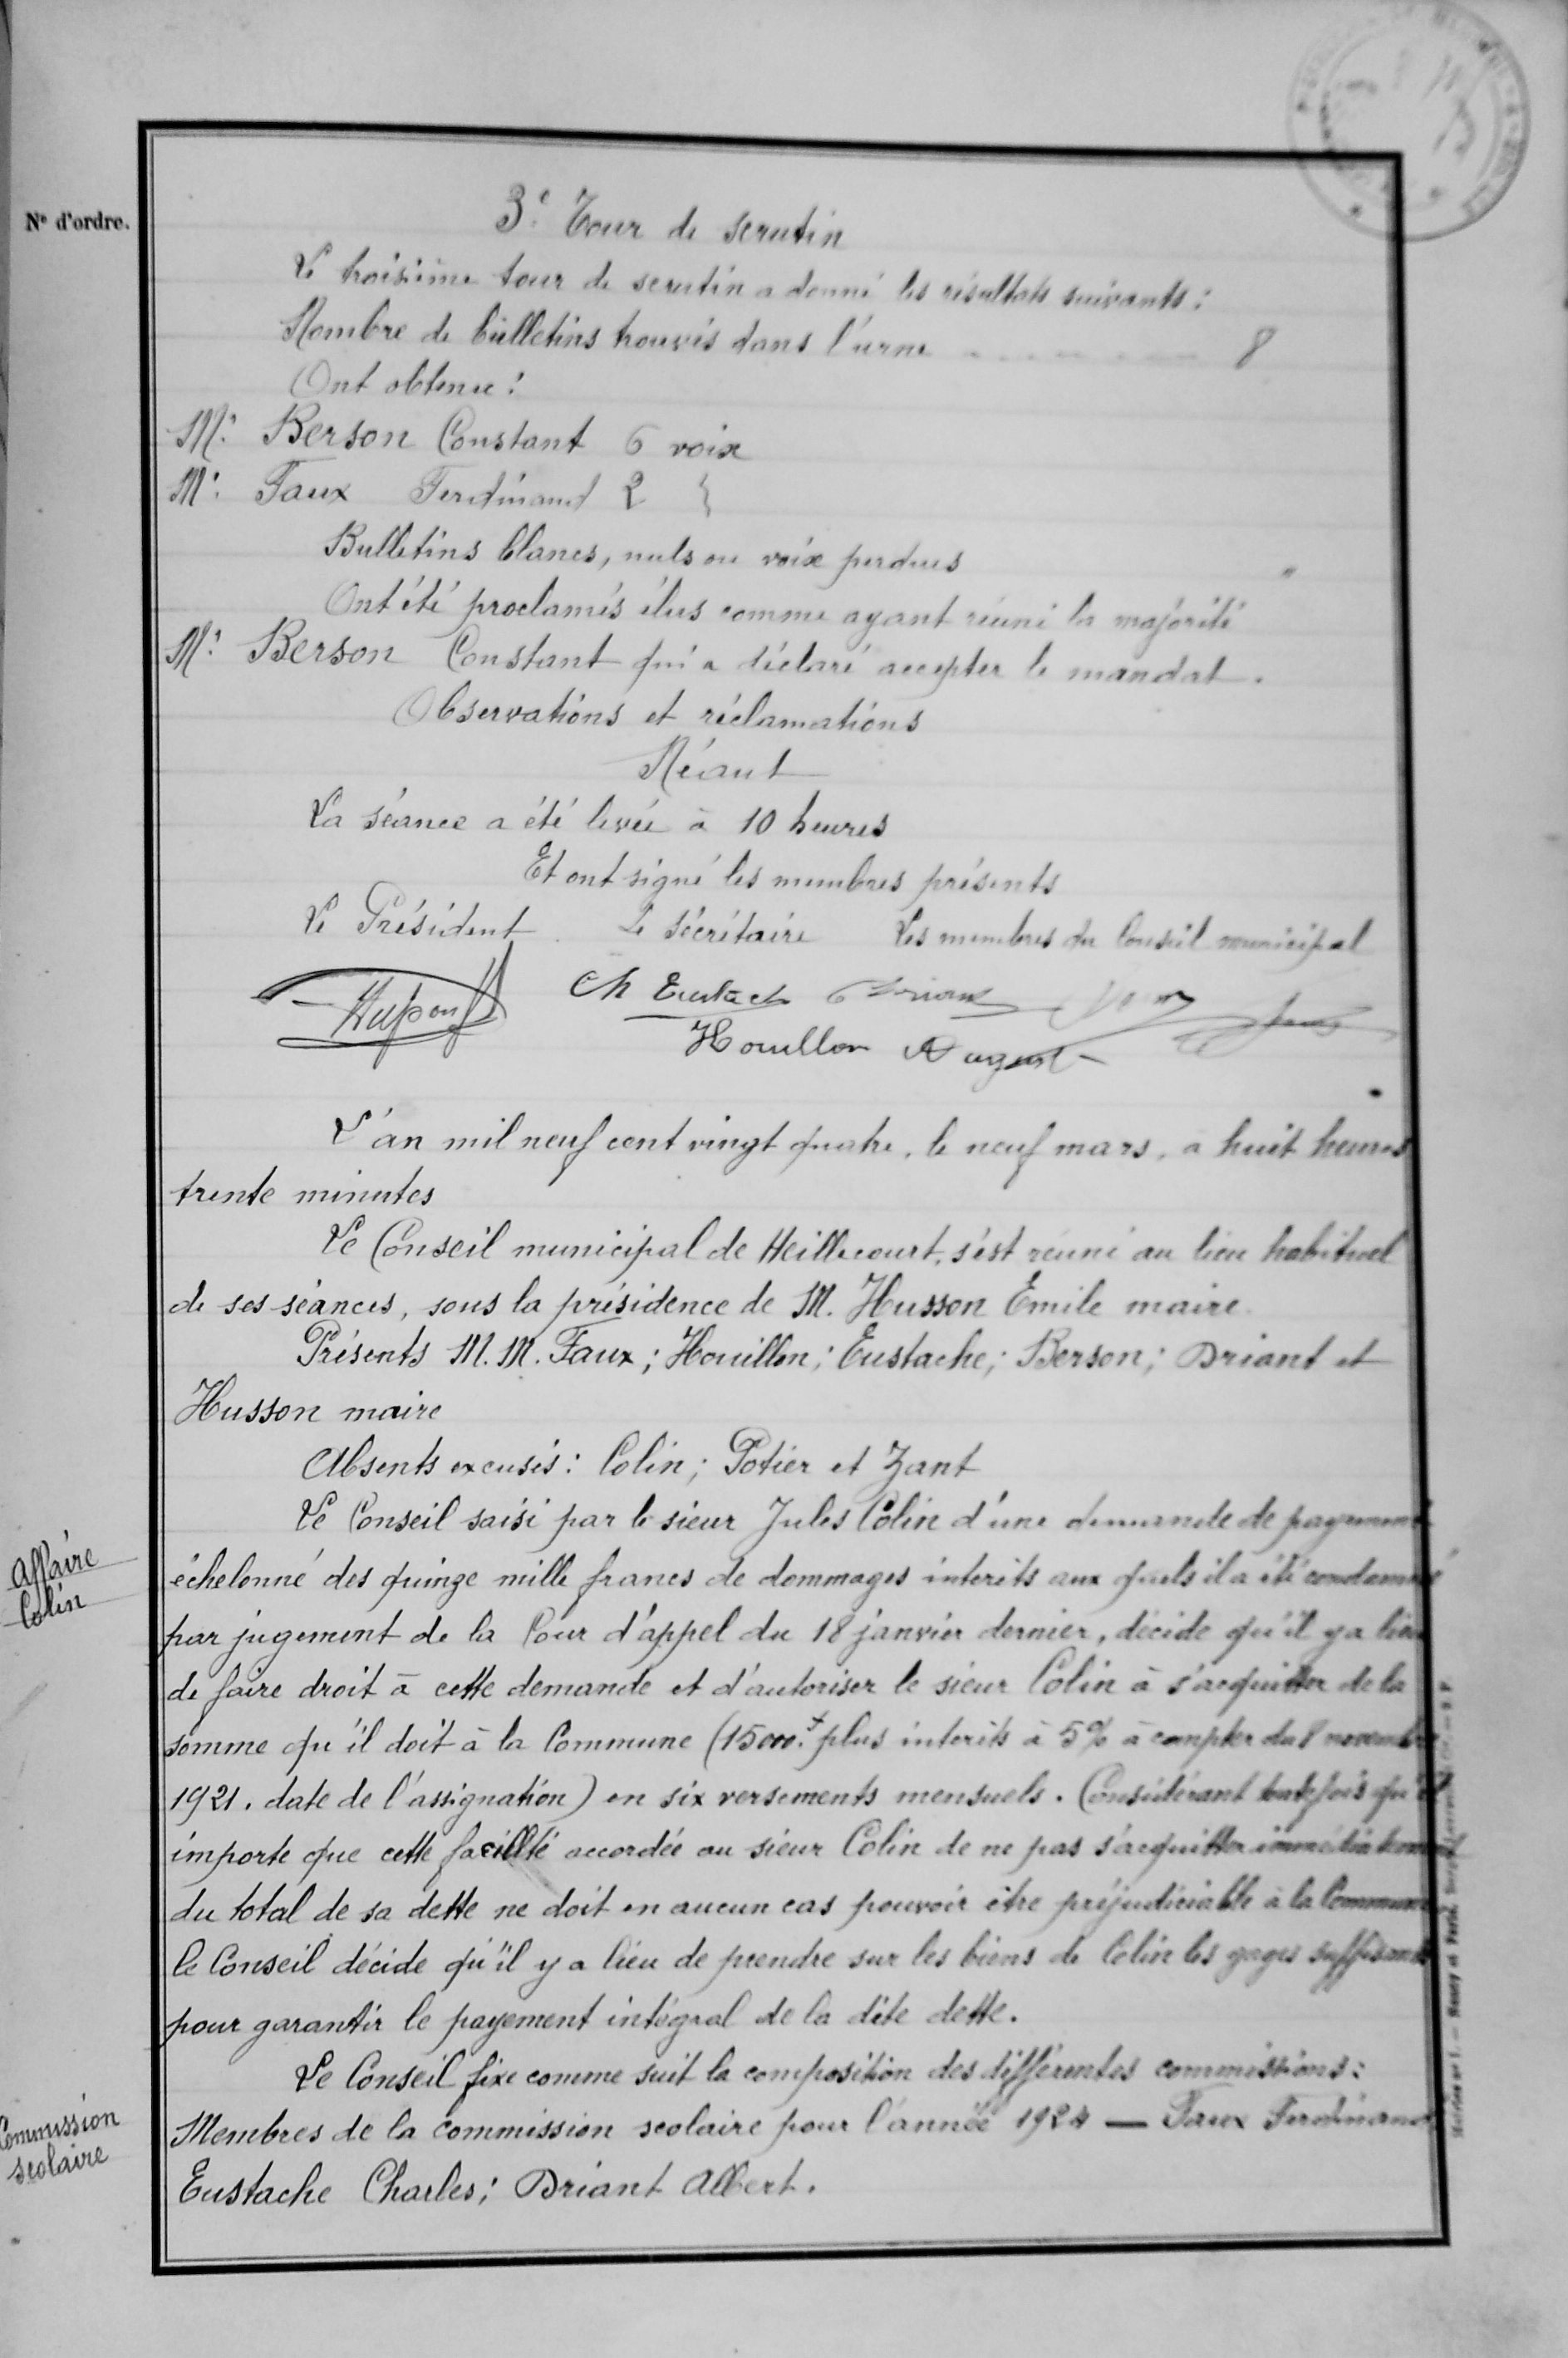 N° d'ordre.
3e Tour de scrutin
Le troisième tour de scrutin a donné les résultats suivants :
Nombre de bulletins trouvés dans l'urne 8
Ont obtenu :
Mr Berson Constant 6 voix
Mr Faux Ferdinand 2
Bulletins blancs, nuls ou voix perdues "
Ont été proclamés élus comme ayant réuni la majorité
Mr Berson Constant qui a déclaré accepter le mandat.
Observations et réclamations
Néant
La séance a été levée à 10 heures
Et ont signé les membres présents
Le Président Le Sécrétaire Les membres du Conseil municipal
Ch Eustache
Houillon
L'an mil neuf cent vingt quatre, le neuf mars, à huit heures
trente minutes
Le Conseil municipal de Heillecourt, s'est réuni au lieu habituel
de ses séances, sous la présidence de M. Husson Emile maire.
Présents M.M. Faux ; Houillon ; Eustache ; Berson ; Driant et
Husson maire
Absents excusés : Colin ; Potier et Zant
Affaire
Colin
Le Conseil saisi par le sieur Jules Colin d'une demande de payement
échelonné des quinze mille francs de dommages interêts aux quels il a été condamné
par jugement de la Cour d'appel du 18 janvier dernier, décide qu'il y a lieu
de faire droit à cette demande et d'autoriser le sieur Colin à s'acquitter de la
somme qu'il doit à la Commune (15000.f plus interêts à 5% à compter du 8 novembre
1921. date de l'assignation) en six versements mensuels. Considérant toutefois qu'il
importe que cette facilité accordée au sieur Colin de ne pas s'acquitter immédiatement
du total de sa dette ne doit en aucun cas pouvoir être préjudiciable à la Commune
le Conseil décide qu'il y a lieu de prendre sur les biens de Colin les gages suffisants
pour garantir le payement intégral de la dite dette.
Le Conseil fixe comme suit la composition des différentes commissions :
Commission
scolaire
Membres de la commission scolaire pour l'année 1924 — Faux Ferdinand
Eustache Charles ; Driant Albert.